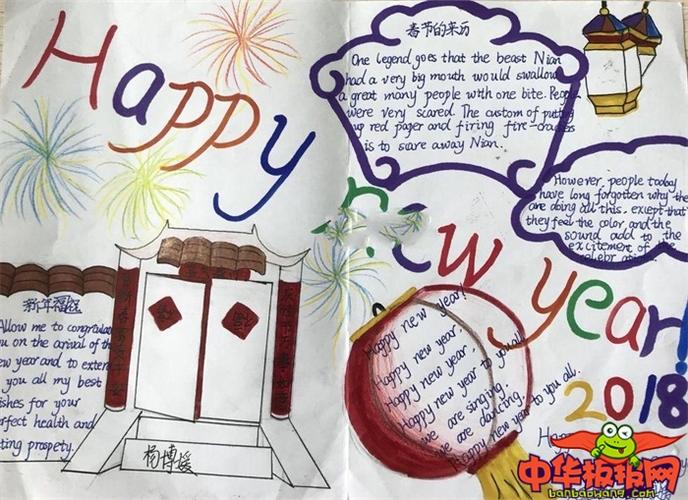 Happy
new year!
2018
春节的来历
One legend goes that the beast Nian
had a very big mouth would swallow
a great many people with one bite. People
were very scared. The custom of putting
up red paper and firing fire-crackers
is to scare away Nian.
However, people today
have long forgotten why the
are doing all this, except that
they feel the color and the
sound add to the
excitement of the
新年祝福
Allow me to congratulat
you on the arrival of the
new year and to exten
you all my best
ishes for your
erfect health and
ting prospety.
杨博媛
Happy new year!
Happy new year,
Happy new year,
Happy new year to you all!
we are singing,
we are dancing,
Happy new year to you all.
中华板报网
banbaohang.com